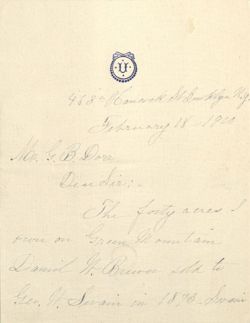 U
468 Hancock St Brooklyn N.Y.
February 18 - 1920
Mr. G. B. Dorr
Dear Sir:-
The forty acres I
own on Green Mountain
Daniel W. Brewer sold to
Geo. W. Swain in 1873 - Swain